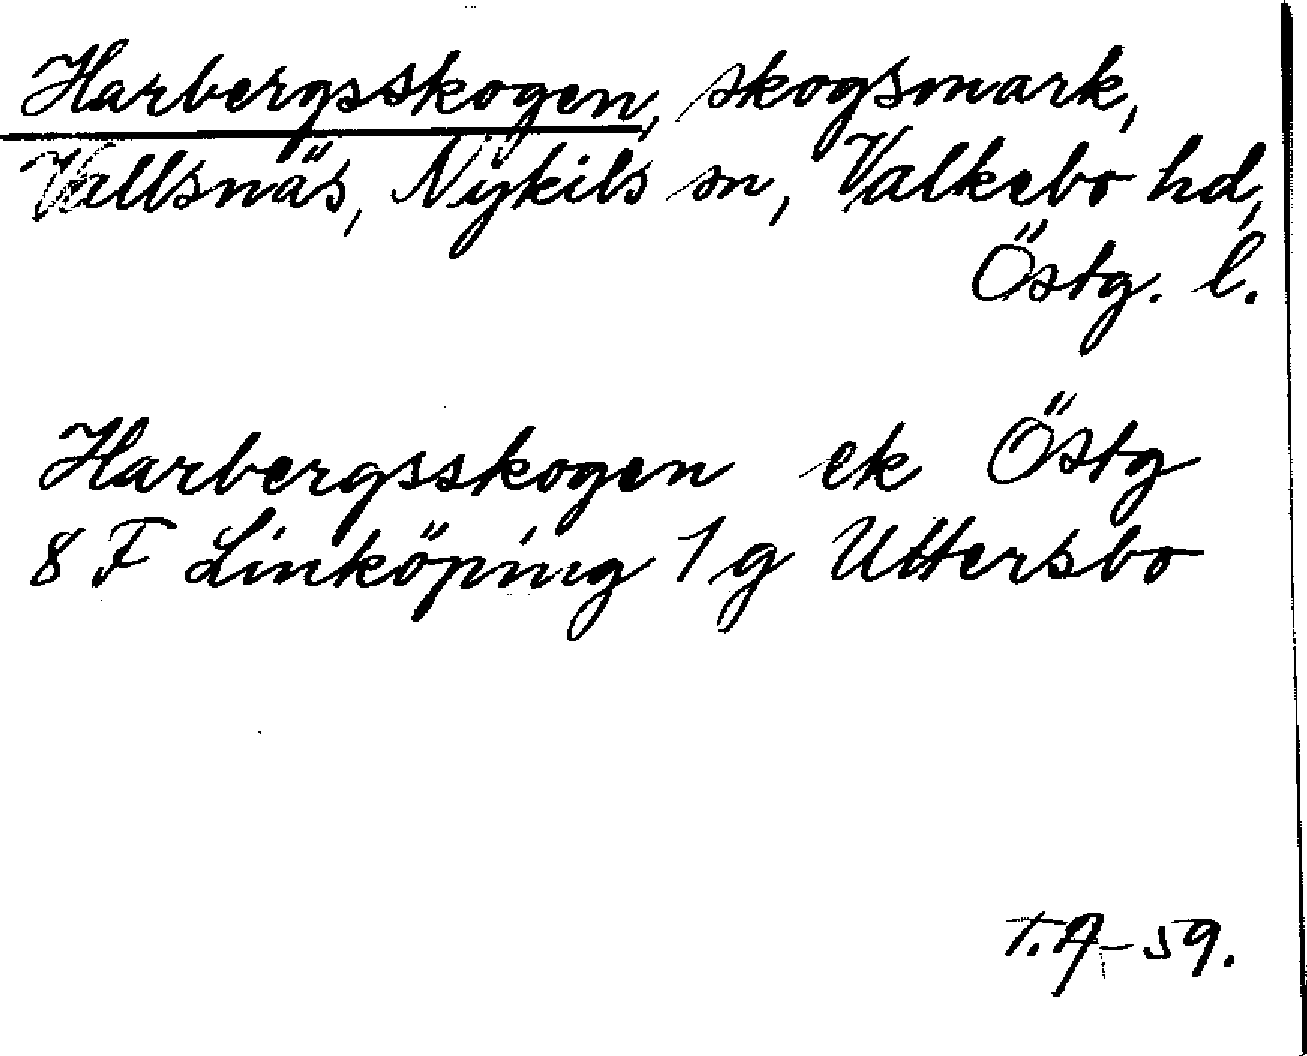 Harbergsskogen, skogsmark,
Vallsnäs, Nykils sn, Valkebo hd,
Östg. l.
Harbergsskogen ek Östg
8 F Linköping 1 g Uttersbo
T.A-59.